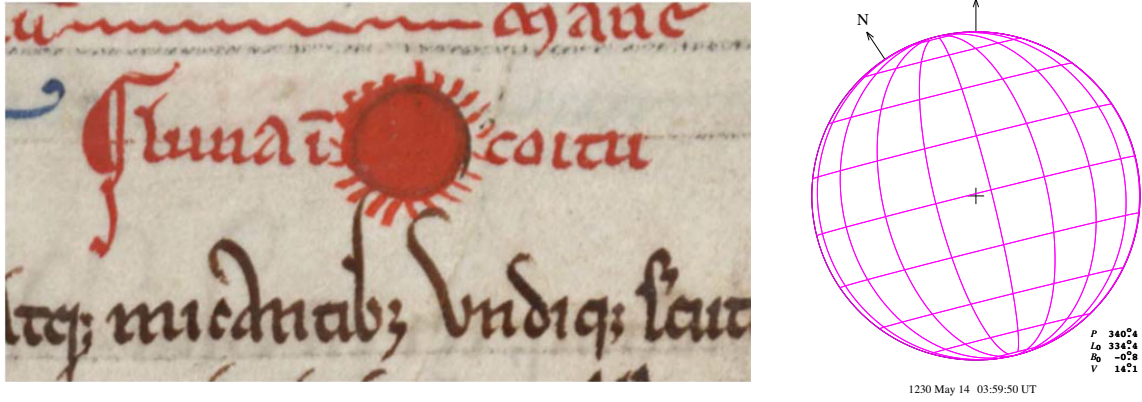 Marie
luna ī coitu
micantibꝫ Vndiqꝫ
N
P 340°.4
L₀ 334°.4
B₀ -0°.8
V 14°.1
1230 May 14 03:59:50 UT